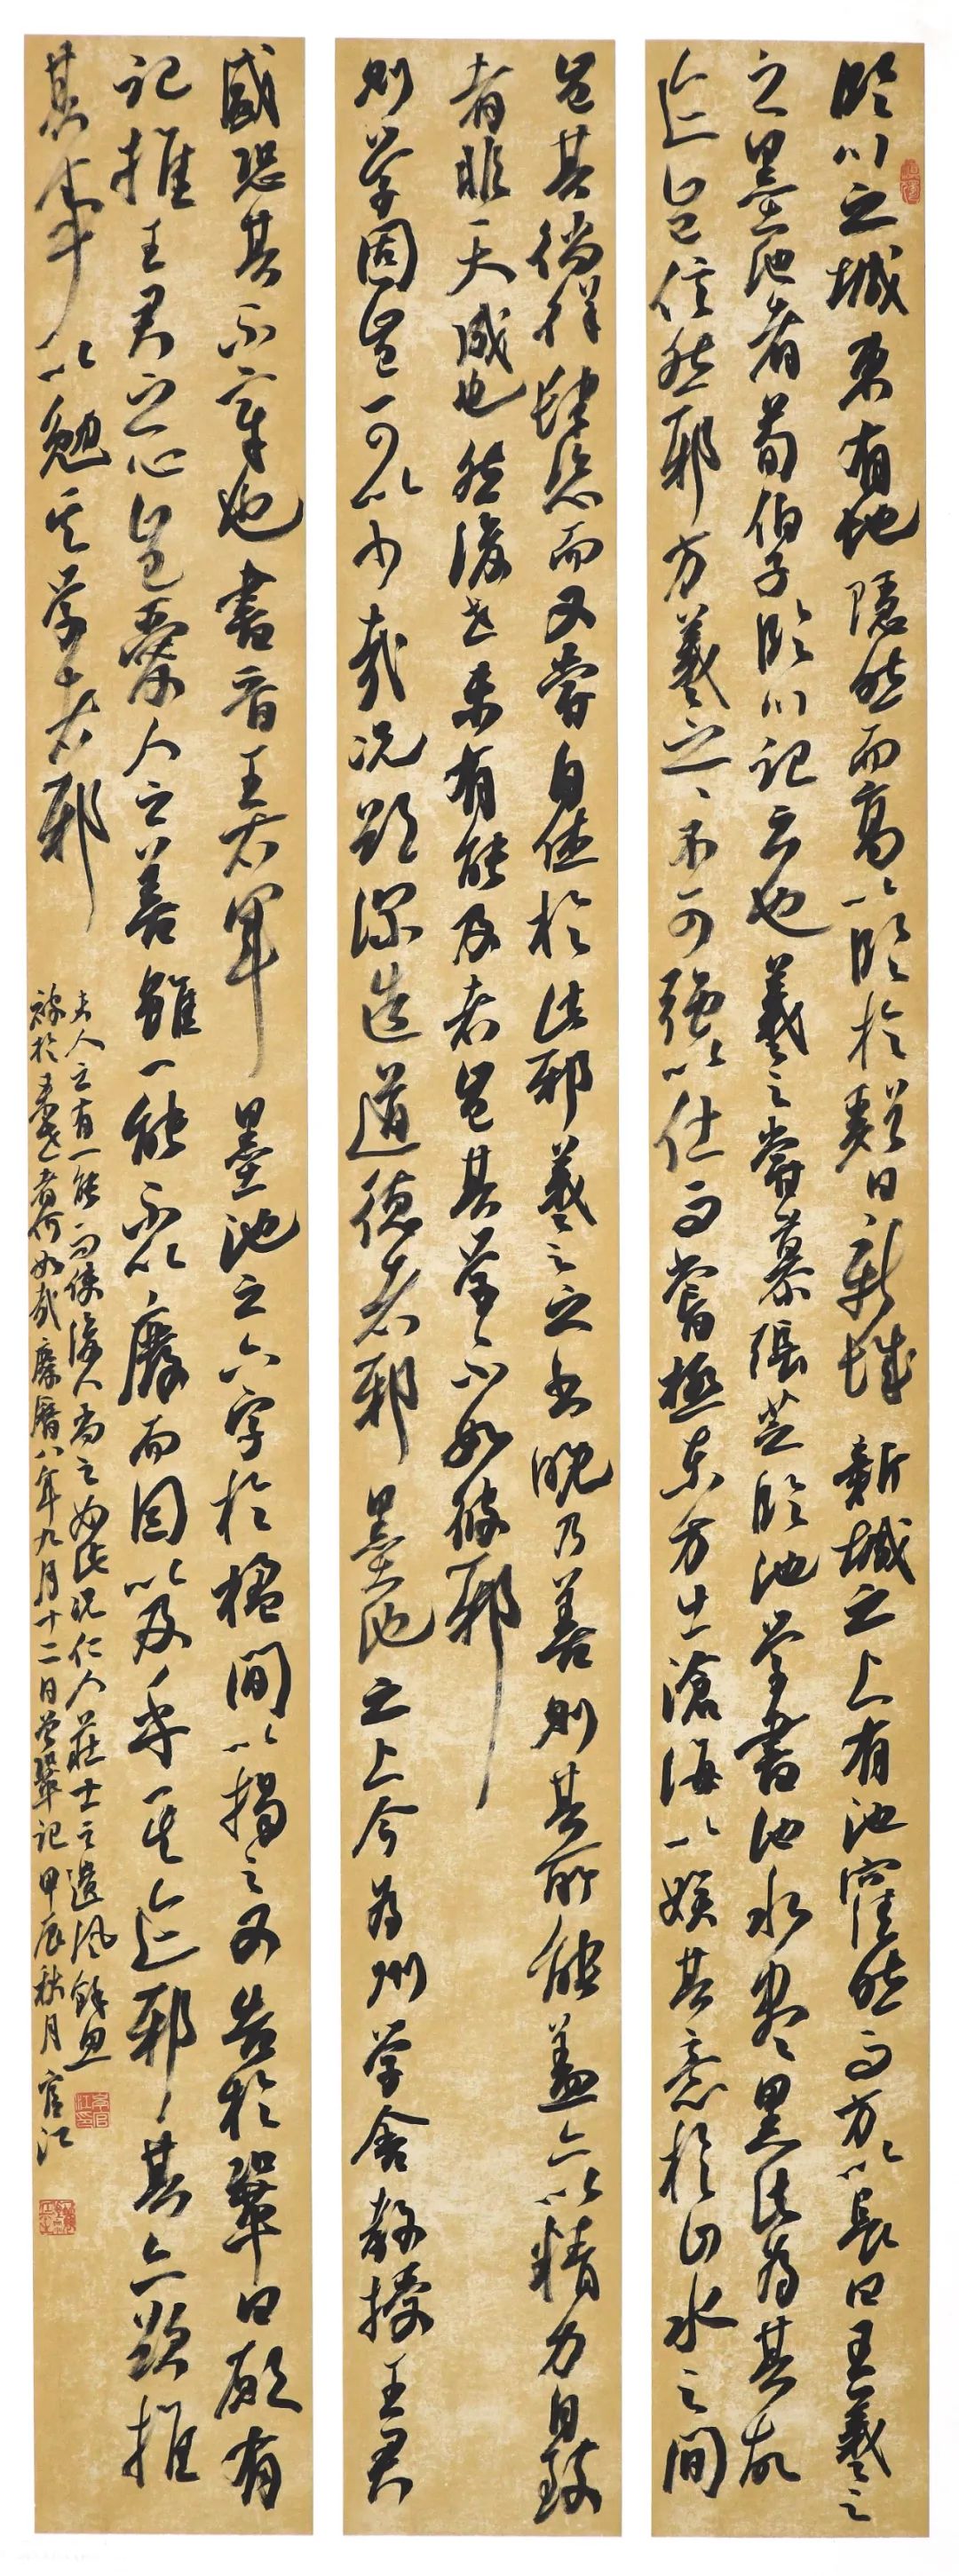 臨川之城東有地隱然而高以臨於谿曰新城新城之上有池窪然而方以長曰王羲之
之墨池者荀伯子臨川記云也羲之嘗慕張芝臨池學書池水盡黑此為其故
迹豈信然邪方羲之之不可強以仕而嘗極東方出滄海以娛其意於山水之間
豈其徜徉肆恣而又嘗自休於此邪羲之之書晚乃善則其所能蓋亦以精力自致
者非天成也然後世未有能及者豈其學不如彼邪
則學固豈可以少哉況欲深造道德者邪墨池之上今為州學舍教授王君
盛恐其不章也書晉王右軍墨池之六字於楹間以揭之又告於鞏曰願有
記推王君之心豈愛人之善雖一能不以廢而因以及乎其迹邪其亦欲推
其事以勉其學者邪
夫人之有一能而使後人尚之如此況仁人莊士之遺風餘思
被於來世者何如哉慶曆八年九月十二日曾鞏記甲辰秋月官江